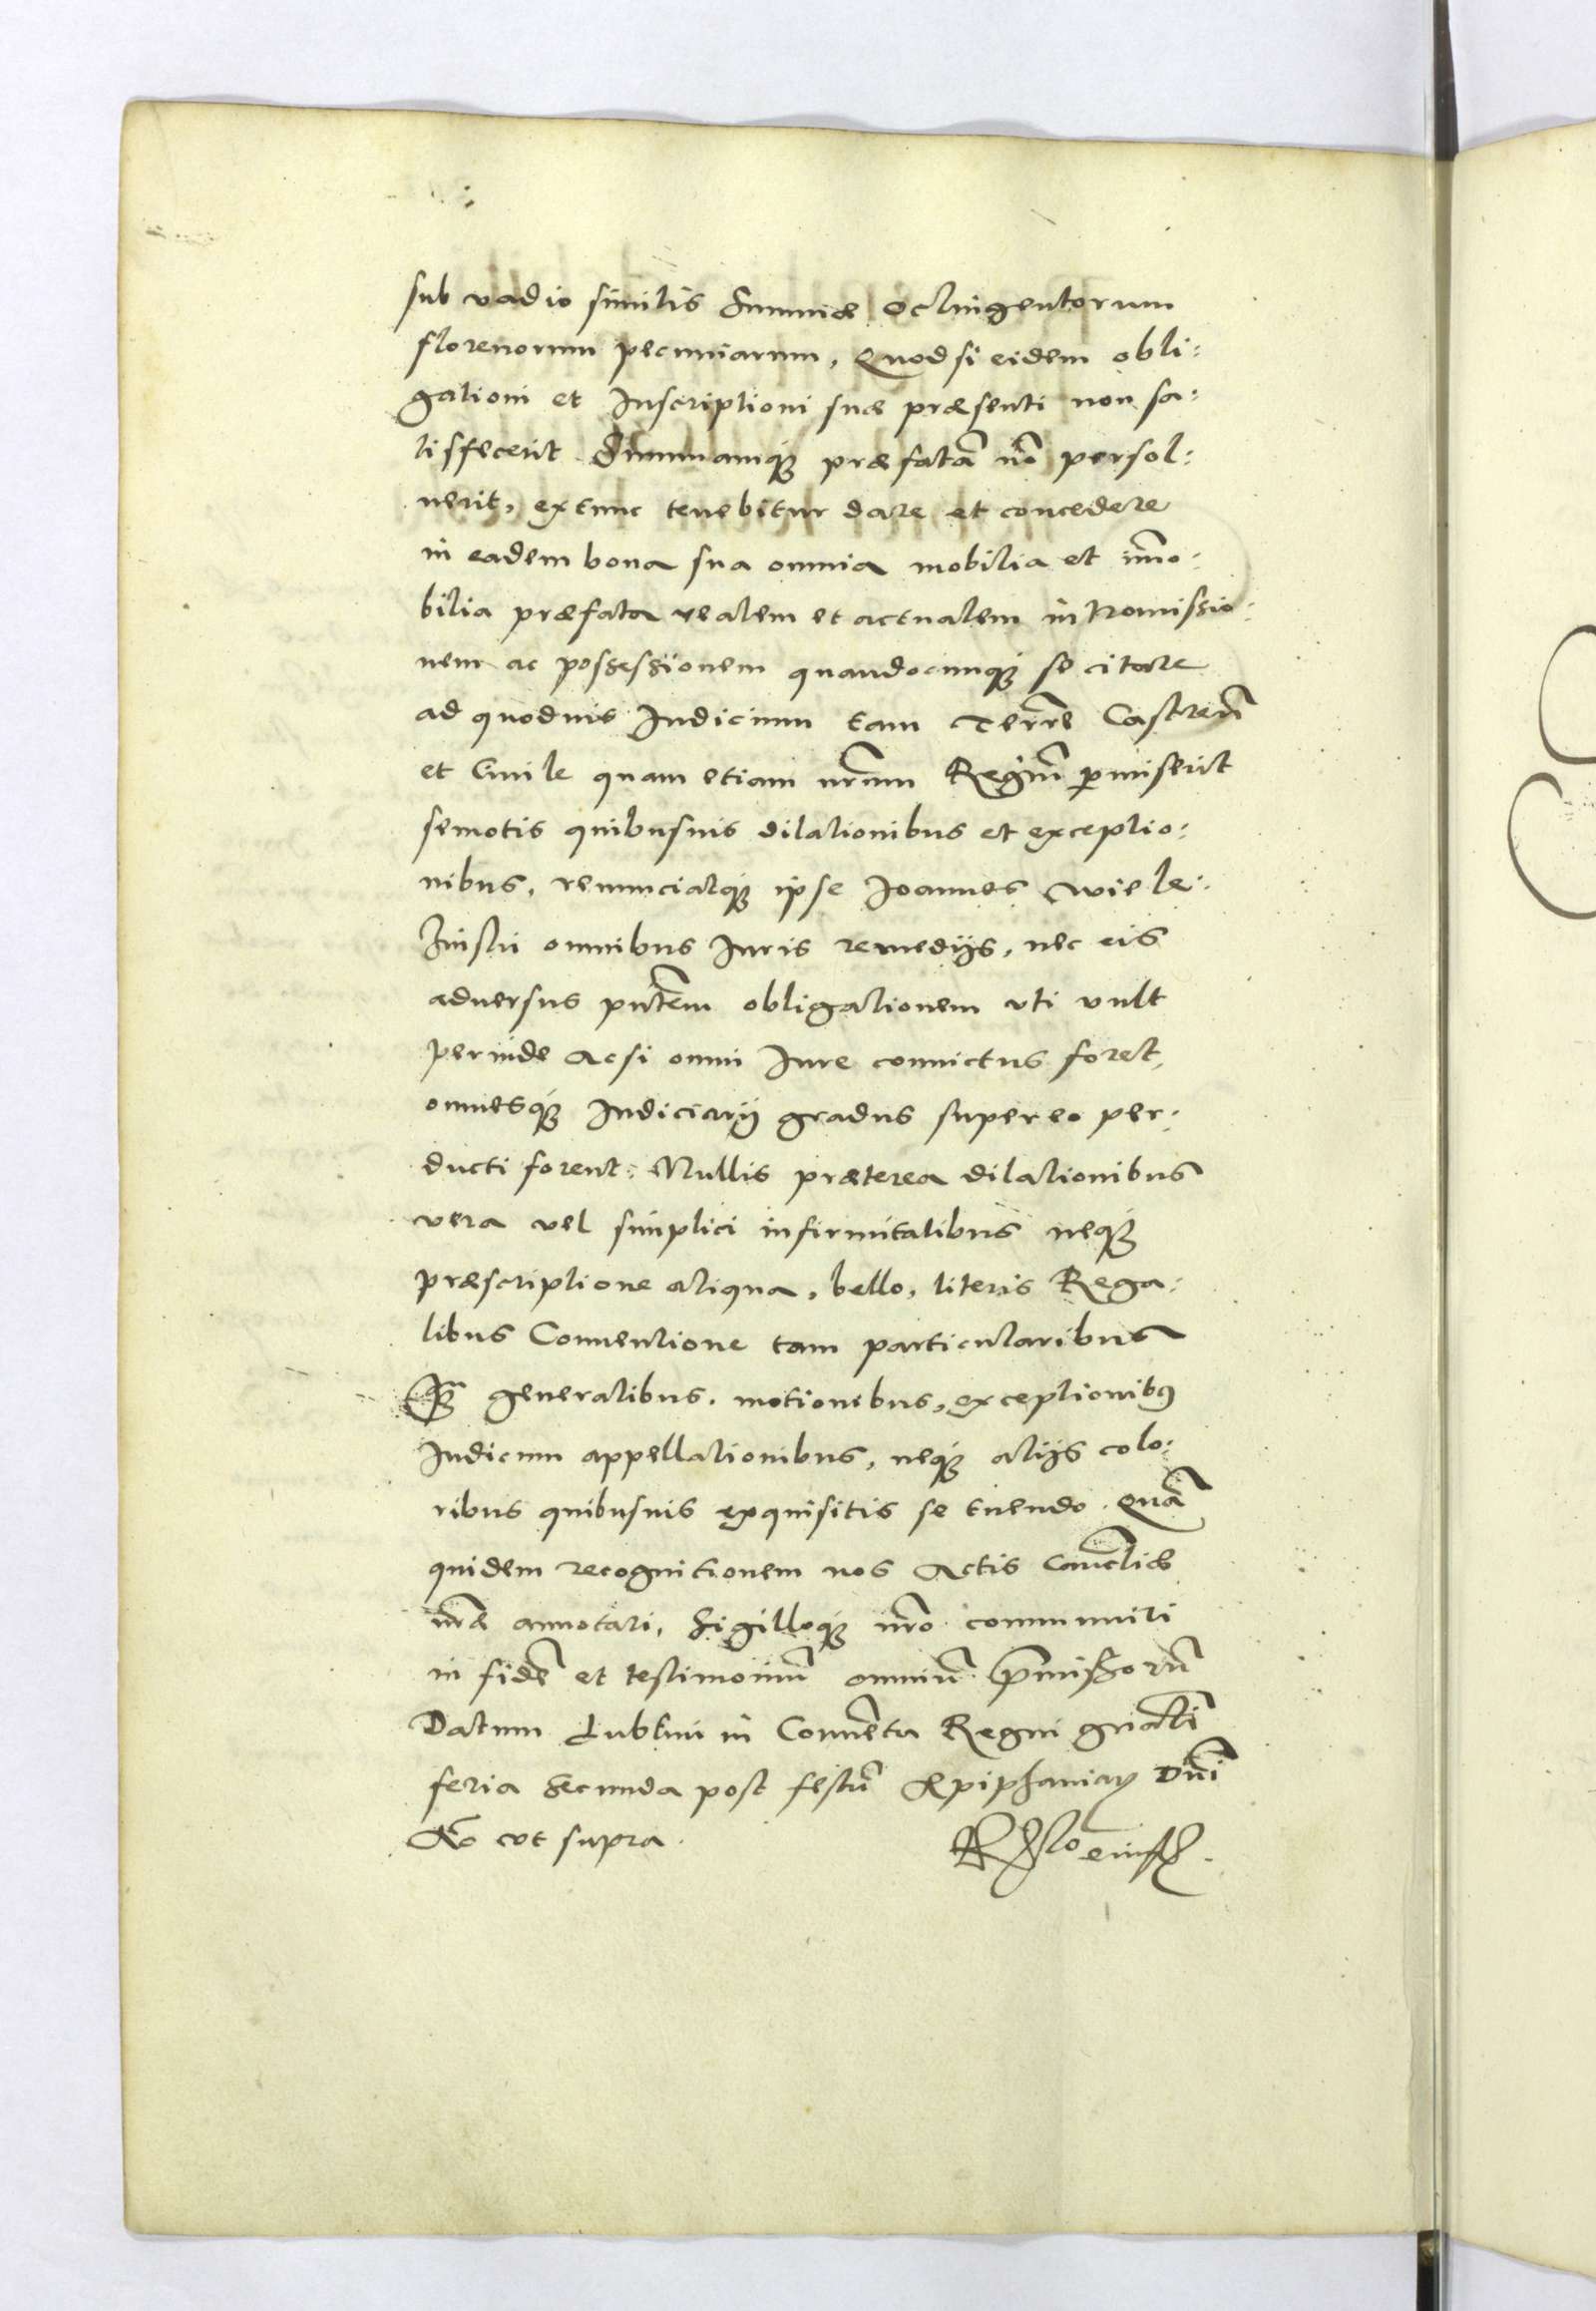 sub vadio similis Summæ Octingentorum
florenorum pecuniarum, Quod si eidem obli:
gationi et Inscriptioni suæ præsenti non sa:
tisfecerit Summamq; præfatã nõ persol:
uerit, extunc tenebitur dare et concedere
in eadem bona sua omnia mobilia et im̃o:
bilia præfata realem et actualem intromissio:
nem ac possessionem quandocunq; se citare
ad quoduis Iudicium tam Terrẽ Castreñ
et Ciuile quam etiam nr̃um Regiũ p̱miserit
semotis quibusuis dilationibus et exceptio:
nibus, renunciatq; ipse Ioannes Wiele:
zinski omnibus Iuris remedijs, nec eis
aduersus pñtem obligationem vti vult
perinde Acsi omni Iure conuictus foret,
omnesq; Iudiciarij gradus super eo per:
ducti forent: Nullis præterea dilationibus
vera vel simplici infirmitatibus neq;
præscriptione aliqua, bello, literis Rega:
libus Conuentione tam particularibus
Q̃ generalibus, motionebus, exceptionibꝫ
Iudicum appellationibus, neq; alijs colo:
ribus quibusuis exquisitis se tuendo. Quã
quidem recognitionem nos Actis Canc̃liæ
nr̃æ annotari, Sigilloq; nr̃o communiri
in fidẽ et testimoniũ omniũ p̃missorũ
Datum Lublini in Conuẽtu Regni gñali
feria Secunda post festũ Æpiphaniarꝫ Dñi
Ao vt supra.